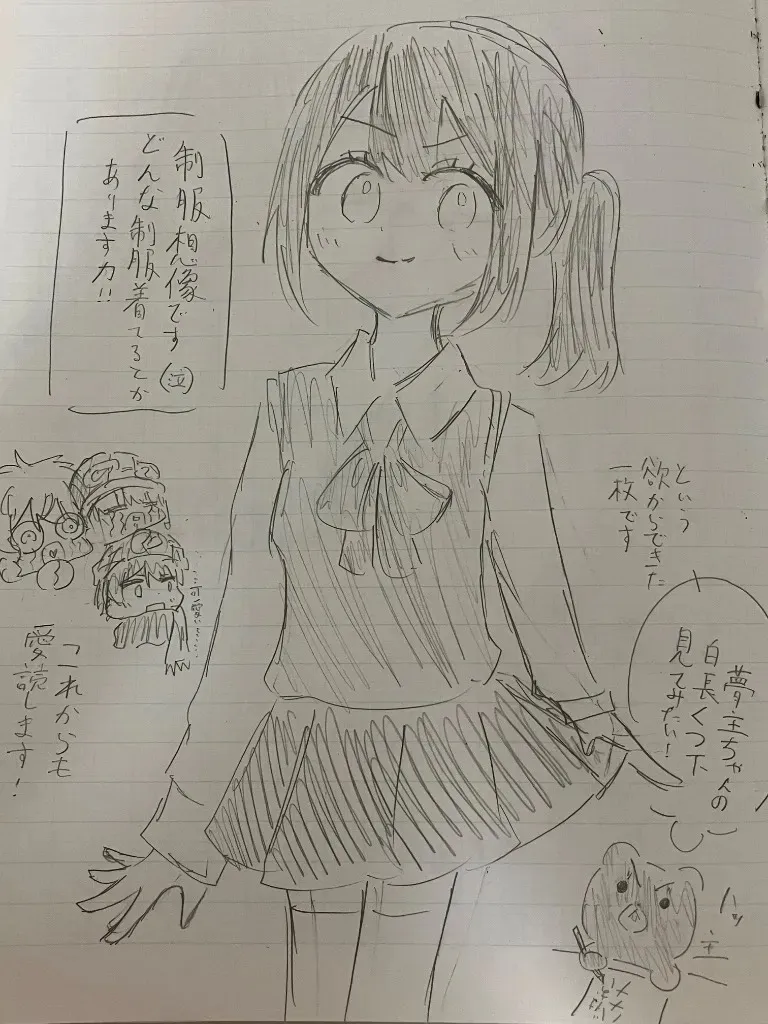 制服想像です(泣)
どんな制服着てるとか
ありますカ!!
という
欲からできた
一枚です
夢主ちゃんの
白長くつ下
見てみたい!
…可愛い…
これからも
愛読します!
ハッ
主